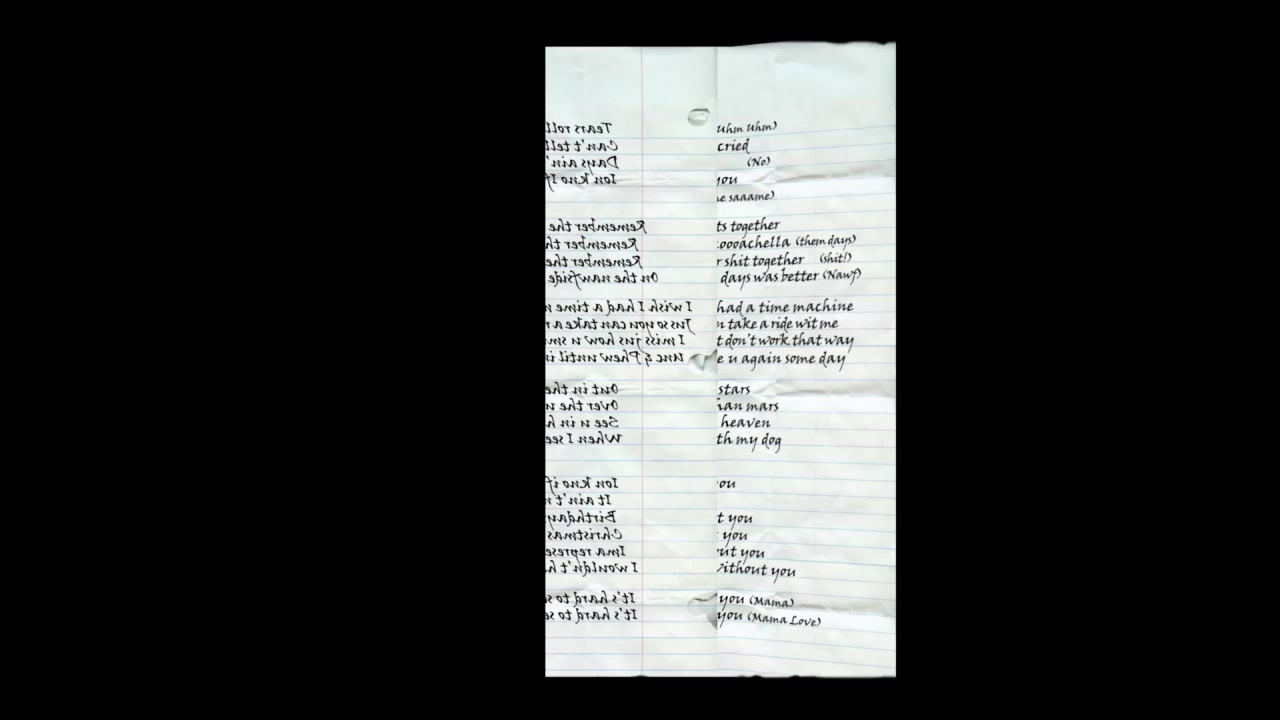 Tears roll Uhm Uhm)
Can't tell cried
Days ain' (No)
Ion kno If you
e saaame)
Remember the ts together
Remember th oooachella (them days)
Remember the r shit together (shit!)
On the nawfside days was better (Nawf)
I wish I had a time m had a time machine
Jus so you can take a r n take a ride wit me
I miss jus how u smi t don't work that way
Unc & Phew until i e u again some day
Out in the stars
Over the m han mars
See u in h heaven
When I see th my dog
Ion kno if ou
It ain't n
Birthday t you
Christmas you
Ima represe ut you
I wouldn't h ithout you
It's hard to s you (Mama)
It's hard to se you (Mama Love)